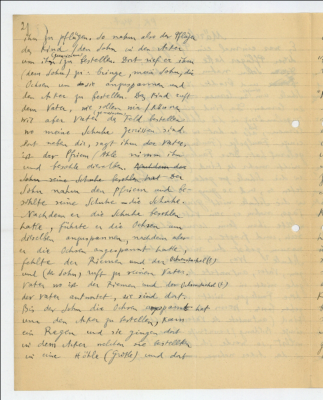 2)
ihn zu pflügen. So nahm also der Pflüger
das Kind den Sohn in den Acker
um ihn zu bestellen. Dort rief er ihm
(dem Sohn) zu: bringe, mein Sohn, die
Ochsen um sie anzuspannen und
den Acker zu bestellen. Das Kind ruft
dem Vater, wo sollen wir / können
wir aber Vater das Feld bestellen
wo meine Schuhe zerrissen sind.
Gut neben dir, sagt ihm der Vater,
ist der Pfriem / Ahle nimm ihn
und besohle dieselben.
Sohn seine Schuhe besohlt hat Der
Sohn nahm den Pfriem und
sohlte seine Schuhe
Nachdem er die Schuhe besohlen
hatte, führte er die Ochsen um
dieselben anzuspannen, nachdem aber
er die Ochsen angespannt hatte,
fehlte der Riemen und der
und (der Sohn) ruft zu seinem Vater.
Vater wo ist der Riemen und der
der Vater antwortet, wo sind dort.
Bis der Sohn die Ochsen hat
um den Acker zu bestellen, kam
ein Regen und sie gingen dort
in dem Acker welchen sie bestellten
in eine Höhle (Grotte) und dort